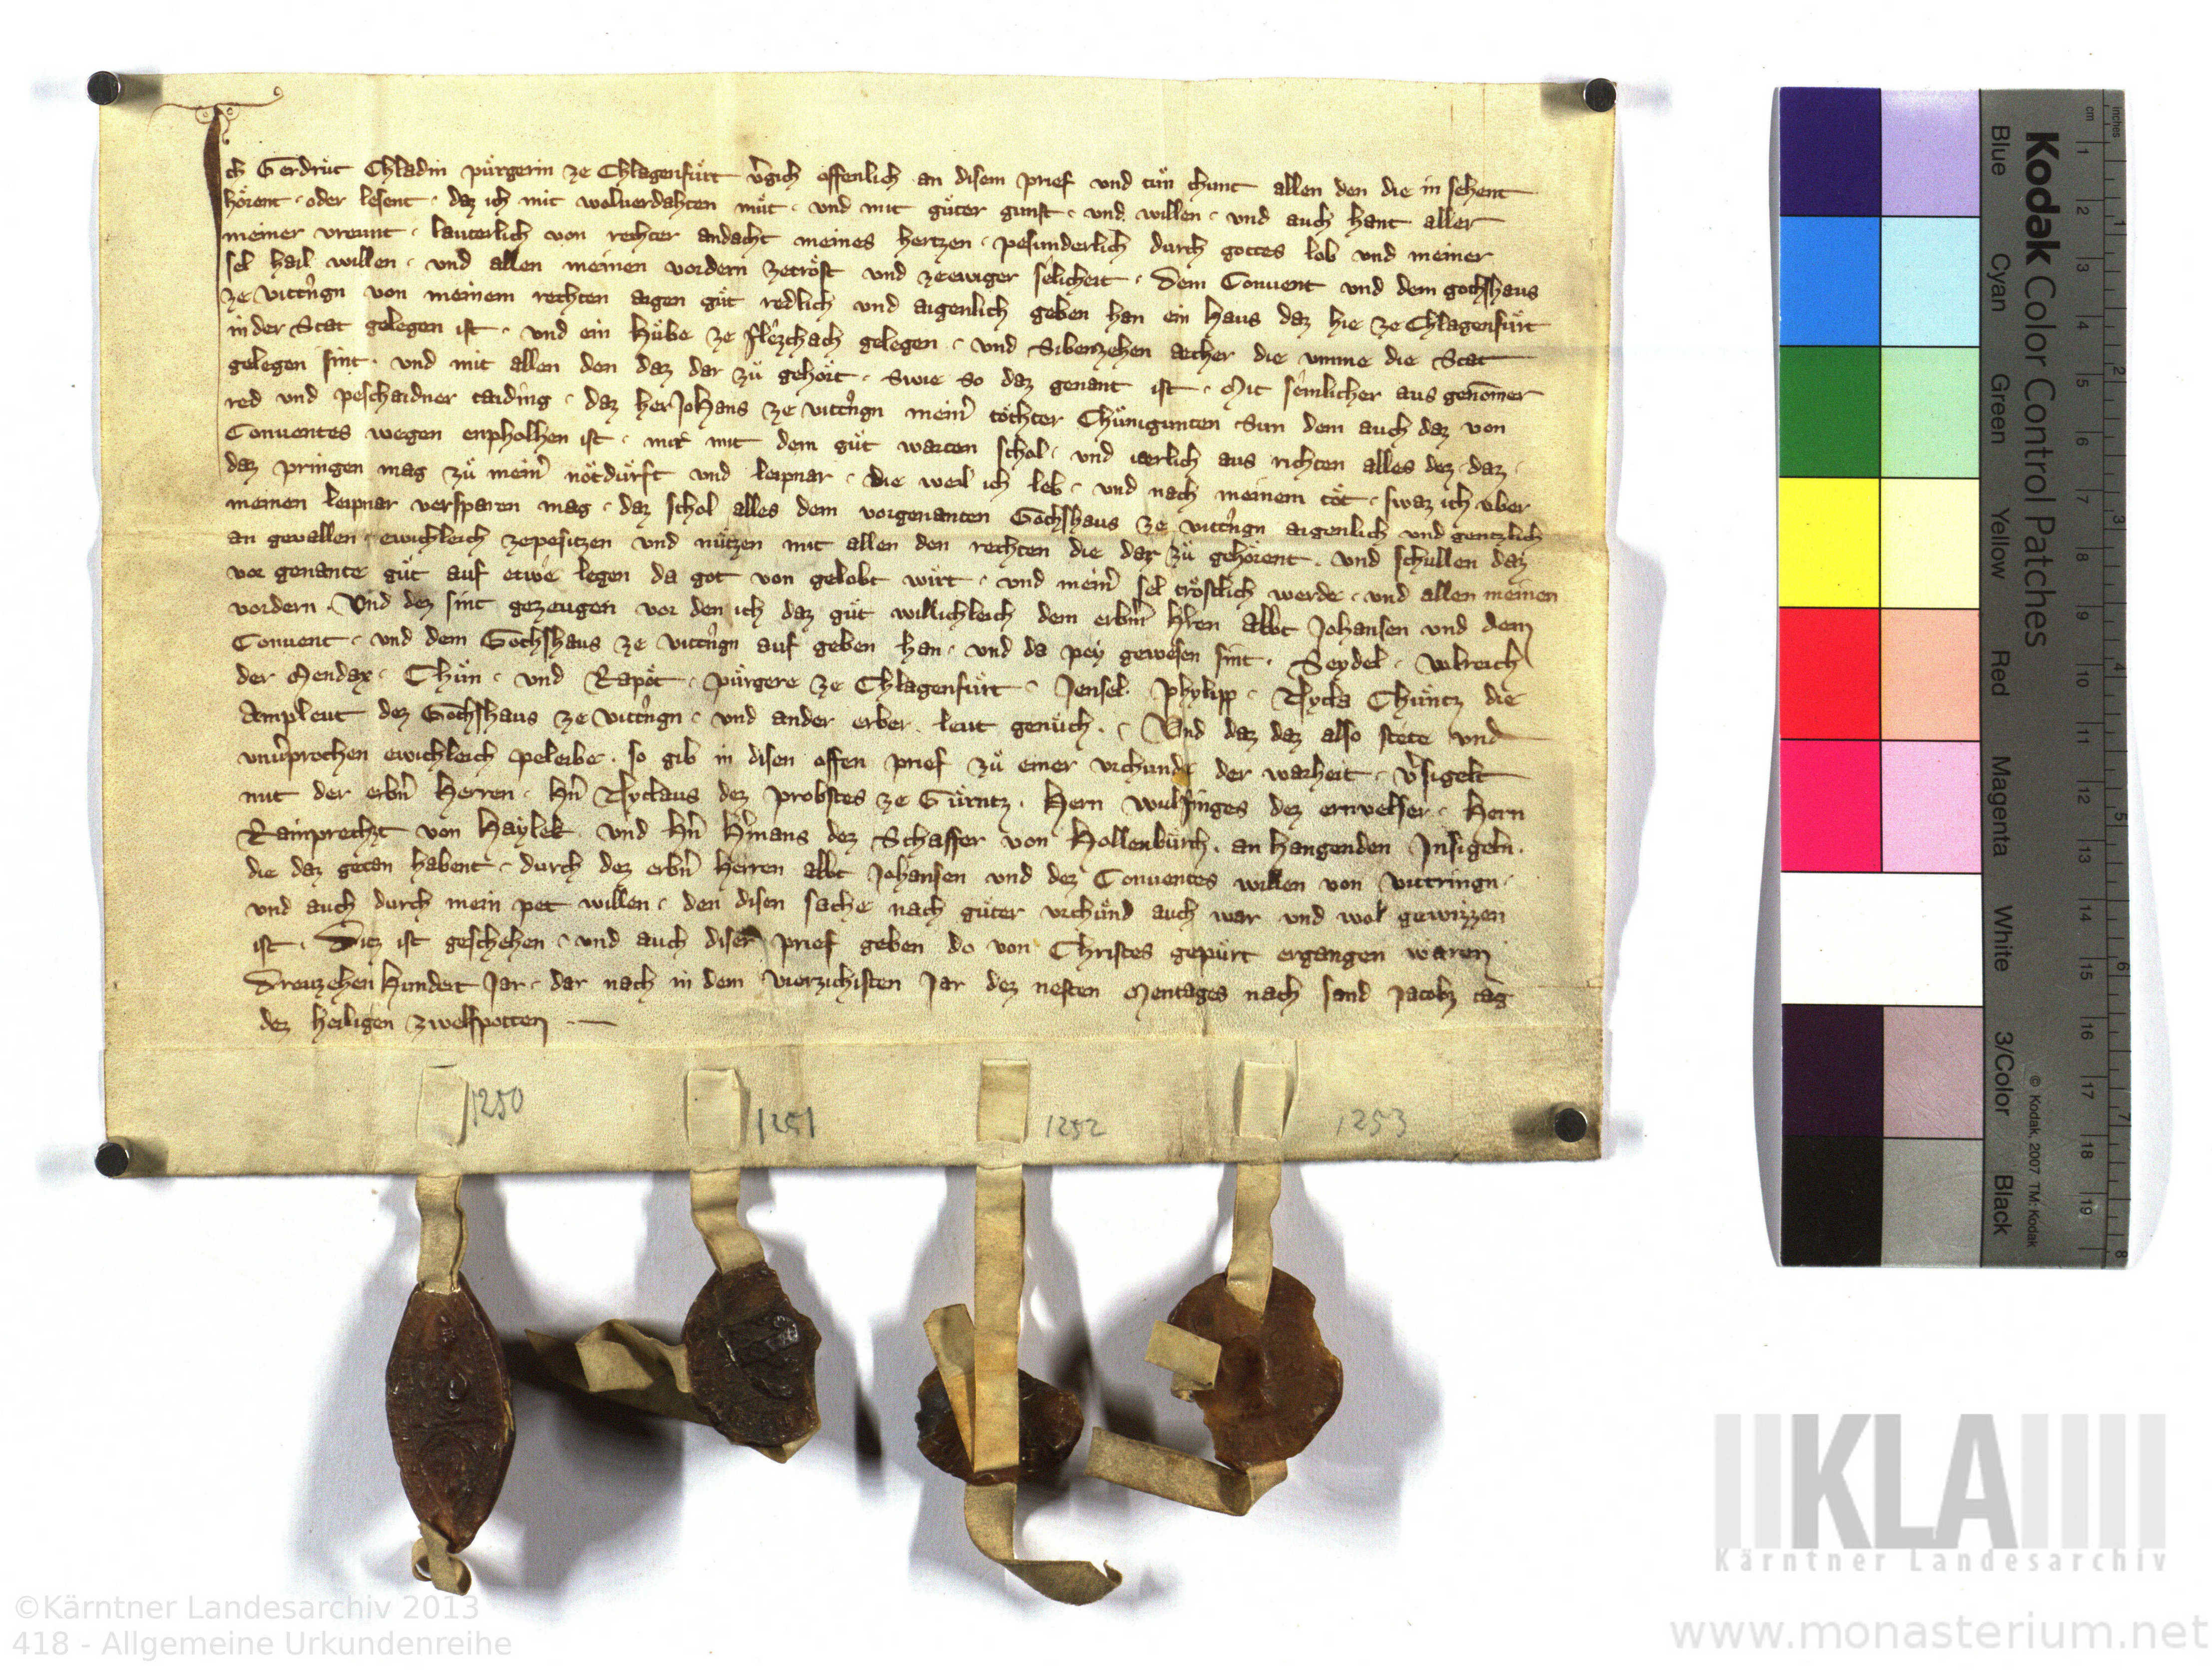 Ich Gerdrůt Chladin pürgerin ze Chlagenfůrt v̉gich offenlich an disem prief und tůn chunt allen den die in sehent
hörent · oder lesent · daz ich mit wolverdahten můt · und mit gůter gunst · und willen · und auch hant aller
meiner vreunt · lauterlich von rechter andacht meines hertzen · pesunderlich durch gottes lob und meiner
sel hail willen · und allen meinen vordern zetröst und zeewiger sêlicheit · Dem Convent und dem gotshaus
ze vittr̉ngn von meinem rechten aigen gůt redlich und aigenlich geben han ein haus daz hie ze Chlagenfůrt
in der Stat gelegen ist · und ein Hůbe ze flêzchach gelegen · und Sibenzehen aecher die umme die Stat
gelegen sint · und mit allen den daz dar zů gehört · Swie so daz genant ist · Mit sêmlicher aus genom̄er
red und peschaidner taiding · daz her Johans ze vittr̉ngn mein̉ töchter Chůnigunten Sun dem auch daz von
Conventes wegen enpholhen ist · mir mit dem gůt warten schol · und iaerlich aus richten alles dez daz ·
daz pringen mag zů mein̉ nötdůrft und leipnar · die weil ich leb · und nach meinem töt · swaz ich über
meinen leipnar versparen mag · daz schol alles dem vorgenanten Gotshaus ze vittr̉ngn aigenlich und gentzlich
an gevallen · ewichleich zepesitzen und nützen mit allen den rechten die dar zů gehörent · und schullen daz
vor genante gůt auf etwe legen da got von gelobt wůrt · und mein̉ sel tröstlich werde · und allen meinen
vordern · Und dez sint gezeugen vor den ich daz gůt willichleich dem erbn̉ h̉ren abbt Johansen und dem
Convent · und dem Gotshaus ze vittr̉ngn auf geben han · und da pey gewesen sint · Seydel · Volreich
der Mendax · Chůn · und Rapöt · pürgere ze Chlagenfůrt · Jensel · Phylipp · Nycla Chůntz die
Ampleut dez Gotshaus ze vittr̉ngn · und ander erber leut genůch · · Und daz daz also stête und
unv̉prochen ewichleich peleibe · so gib in disen offen prief zů einer urchunde der warheit · v̉sigelt
mit der erbn̉ Herren · Hn̉ Nyclaus dez probstes ze Gůrntz · Hern Wulfinges dez ernvelser · Hern
Rainprechzt von Haylek und Hn̉ H̉mans dez Schaffer von Hollenbůrch · an hangenden Insigeln ·
die daz getan habent · durch dez erbn̉ Herren abbt Johansen und dez Conventes willen von Vittringn ·
und auch durch mein pet willen · den disen sache nach gůter urchůnd auch war und wol gewizzen
ist · Ditz ist geschehen · und auch diser prief geben do von Christes gepůrt ergangen waren
Dreuzehen Hundert Jar · dar nach in dem vierzichisten Jar dez nesten Mentages nach sand Jacobz tag
dez heiligen zwelfpotten · —
1250 1251 1252 1253
Kodak Color Control Patches
Blue Cyan Green Yellow Red Magenta White 3/Color Black
© Kodak, 2007 TM: Kodak
cm 1 2 3 4 5 6 7 8 9 10 11 12 13 14 15 16 17 18 19
inches 1 2 3 4 5 6 7 8
KLA
Kärntner Landesarchiv
©Kärntner Landesarchiv 2013
418 - Allgemeine Urkundenreihe
www.monasterium.net